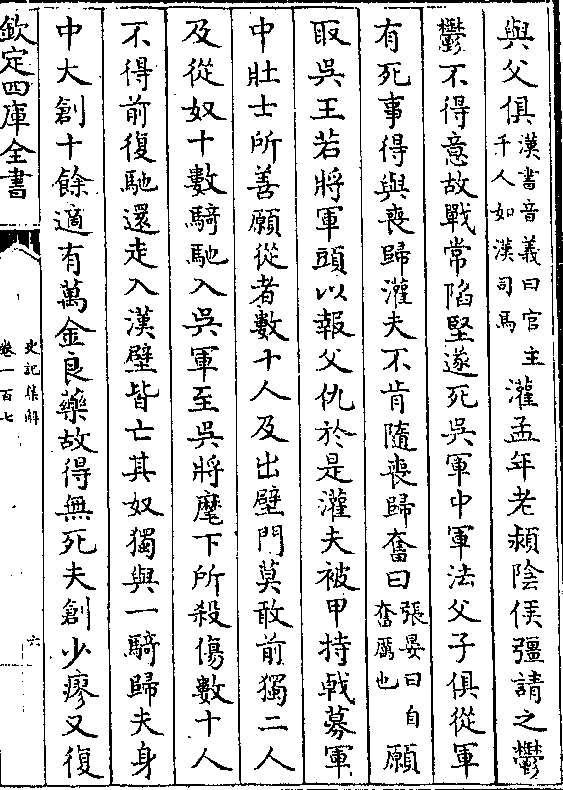 與父俱漢書音義曰官主千人如漢司馬灌孟年老潁陰侯彊請之鬱
鬱不得意故戰常陷堅遂死吳軍中軍法父子俱從軍
有死事得與喪歸灌夫不肯隨喪歸奮曰張晏曰自奮厲也願
取吳王若將軍頭以報父仇於是灌夫被甲持㦸募軍
中壯士所善願從者數十人及出壁門莫敢前獨二人
及從奴十數騎馳入吳軍至吳將麾下所殺傷數十人
不得前復馳還走入漢壁皆亡其奴獨與一騎歸夫身
中大創十餘適有萬金良藥故得無死夫創少瘳又復
欽定四庫全書
史記集解
卷一百七
六